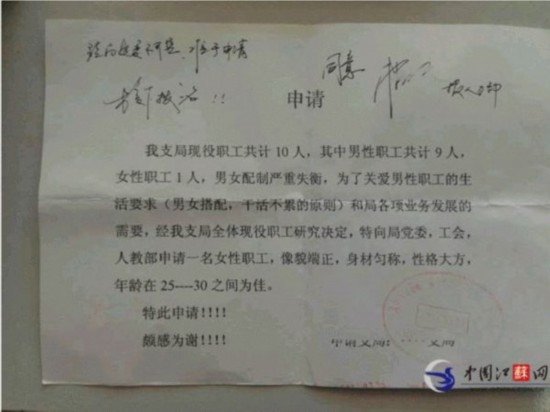 同意
申请
我支局现役职工共计 10 人，其中男性职工共计 9 人，
女性职工 1 人，男女配制严重失衡，为了关爱男性职工的生
活要求（男女搭配，干活不累的原则）和局各项业务发展的
需要，经我支局全体现役职工研究决定，特向局党委，工会，
人教部申请一名女性职工，像貌端正，身材匀称，性格大方，
年龄在 25----30 之间为佳。
特此申请!!!!
颇感为谢!!!!
申请支局：
支局
中国江苏网